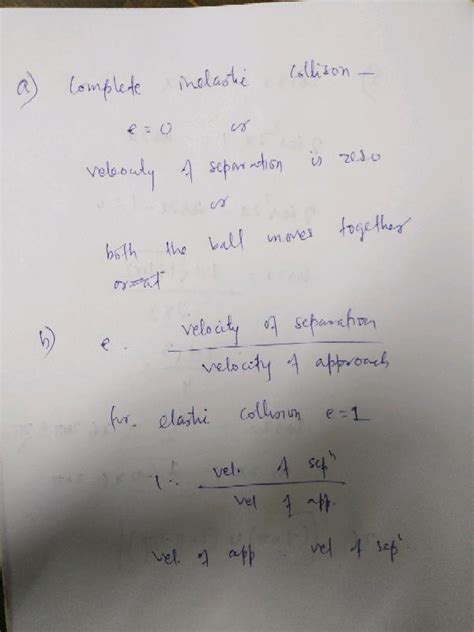 a) Complete inelastic Collison —
e = 0 or
velocity of separation is zero
or
both the ball moves together
or at
b) e = velocity of separation
velocity of approach
for elastic collision e = 1
1 = vel. of sepⁿ
vel of app.
vel. of app = vel of sepⁿ